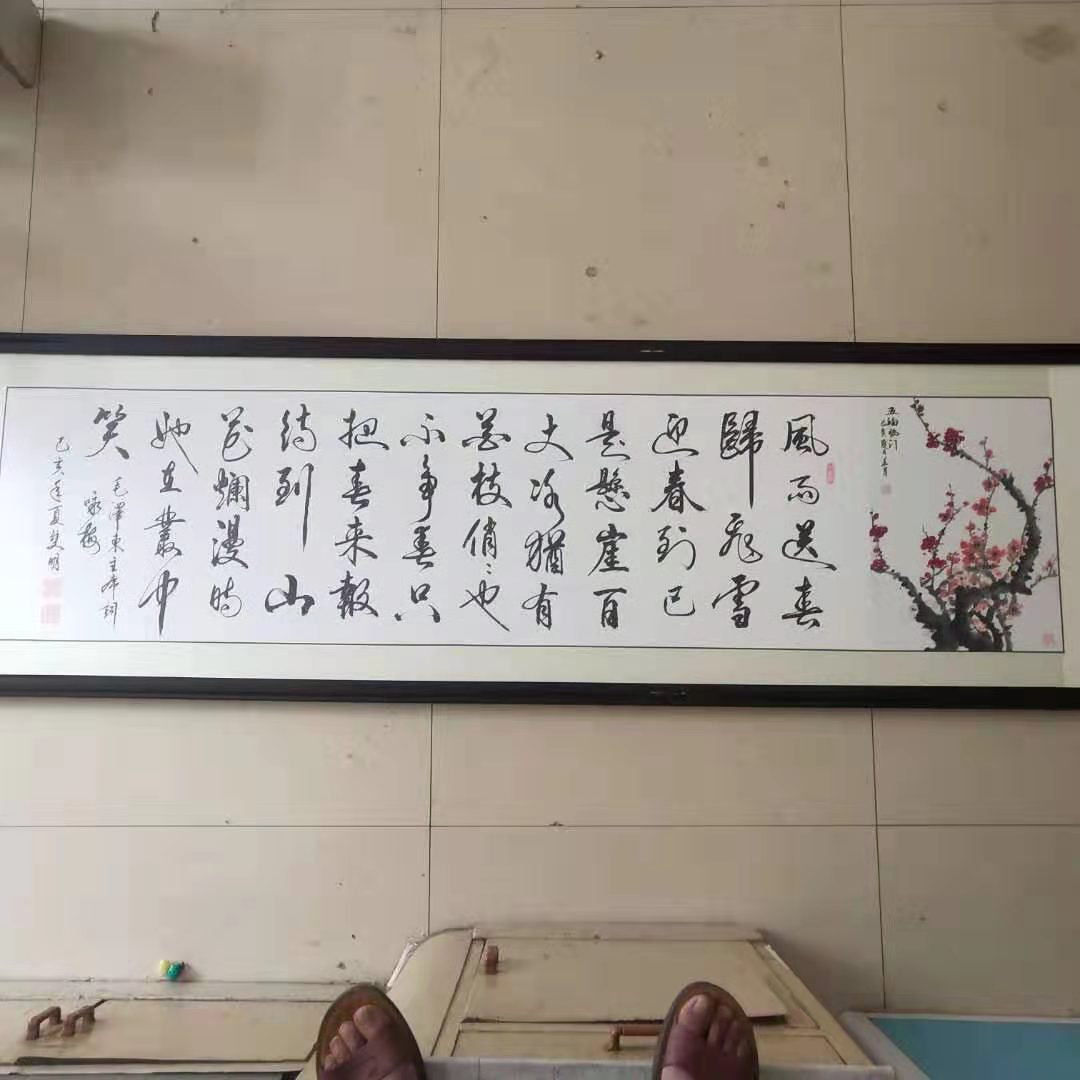 五福临门
風雨送春
歸飛雪
迎春到已
是懸崖百
丈冰猶有
花枝俏々也
不争春只
把春来報
待到山
花爛漫時
她在叢中
笑
毛澤東主席词
咏梅
己亥年夏